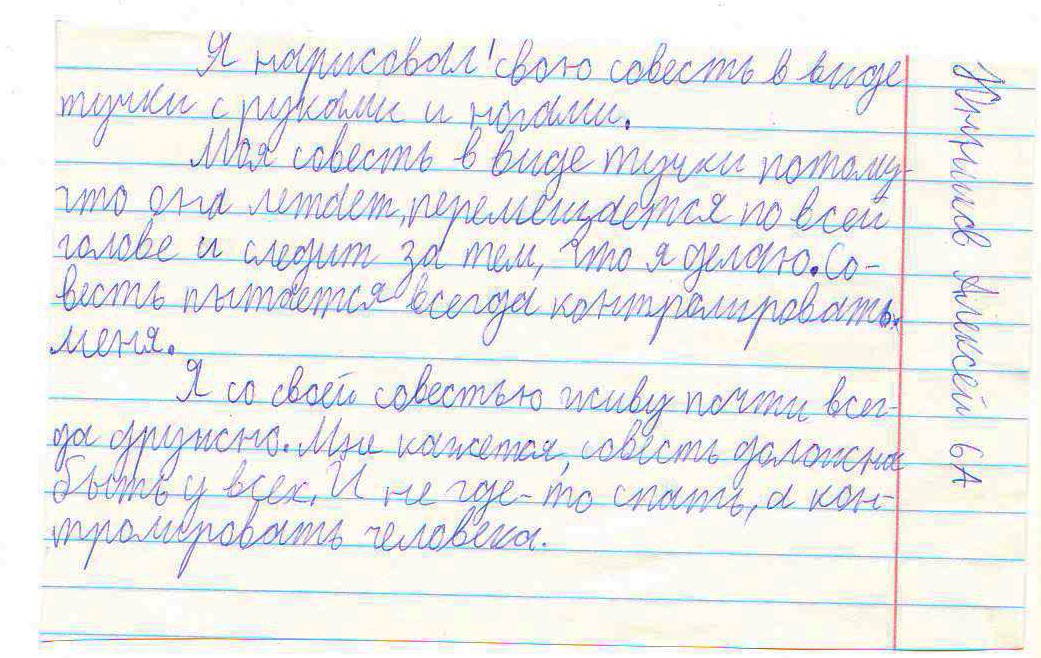 Я нарисовал свою совесть в виде
тучки с руками и ногами.
Моя совесть в виде тучки потому-
что она летает, перемещается по всей
голове и следит за тем, что я делаю. Со-
весть пытается всегда контролировать
меня.
Я со своей совестью живу почти всег-
да дружно. Мне кажется, совесть должна
быть у всех. И не где-то спать, а кон-
тролировать человека.
Алексей 6А